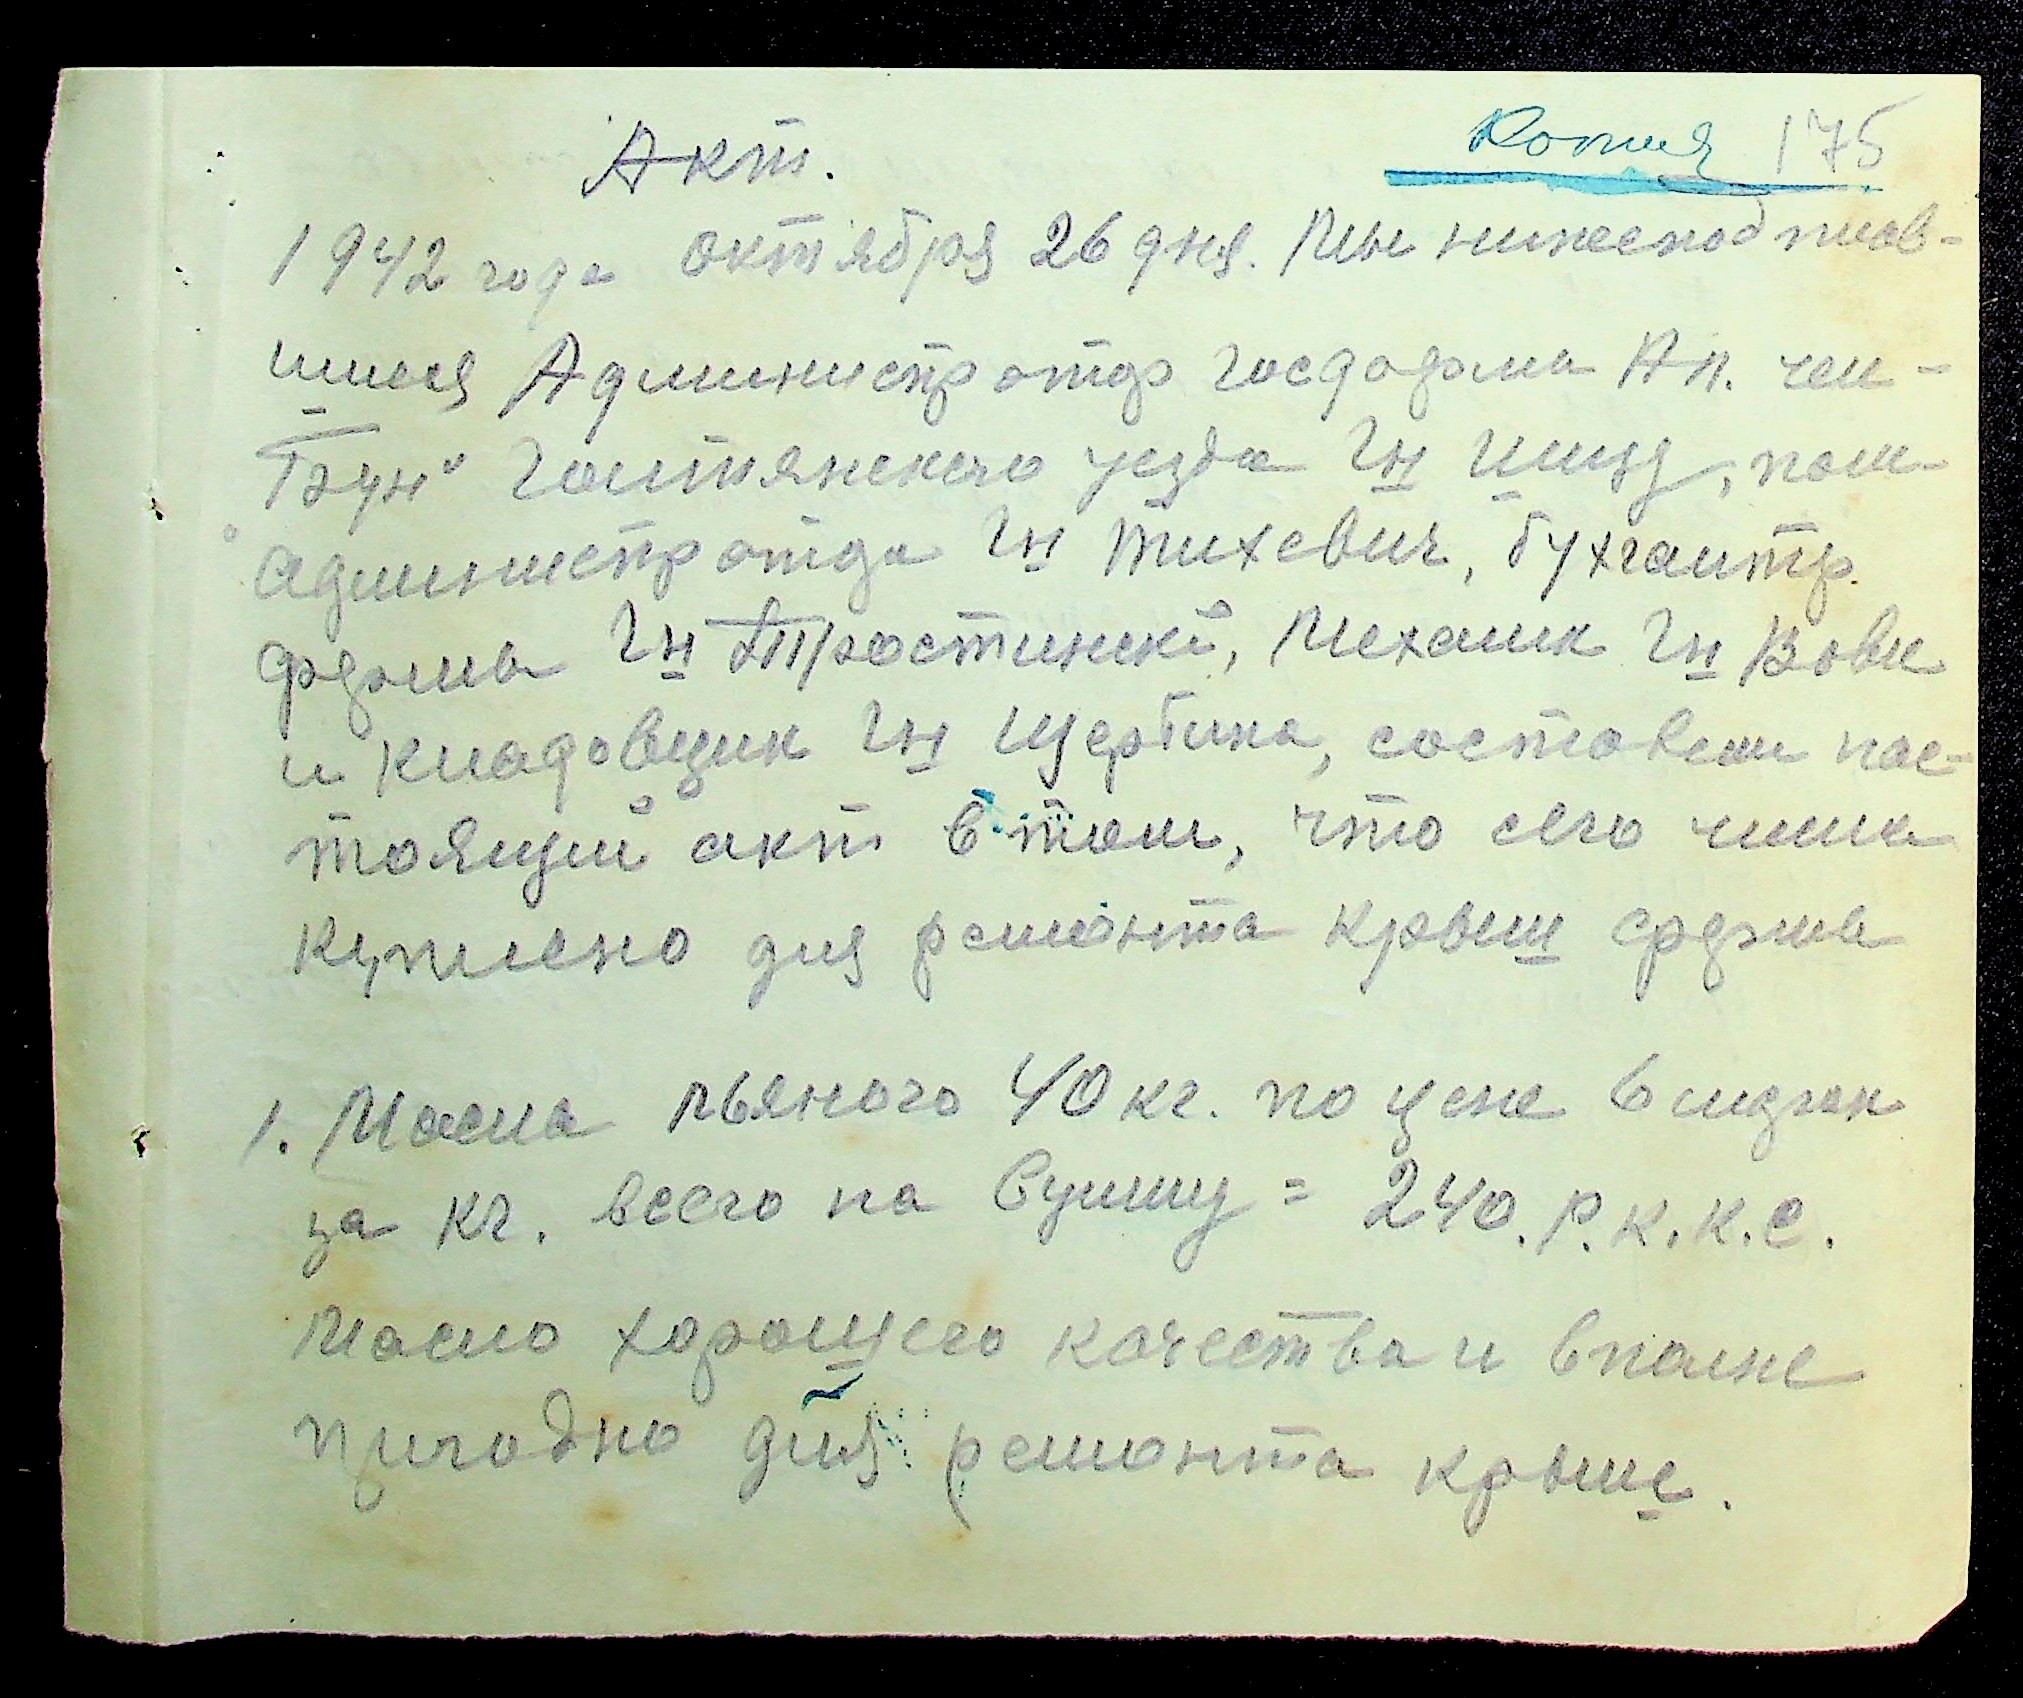 Копия 175
Акт.
1942 года октября 26 дня. Мы нижеподписав-
шиеся Администратор госфермы Ап.
Голтянского уезда Гн Шмид, пом.
администратора Гн Тихевич, бухгалтер
фермы Гн Тростински, механик Гн Вовк
и кладовщик Гн Щербина, составели нас-
тоящий акт в том, что сего числа
куплено для ремонта крыш фермы
1. Масла льяного 40 кг. по цене 6 марок
за кг. всего на сумму = 240. р.к.к.с.
Масло хорошего качества и вполне
пригодно для ремонта крыше.